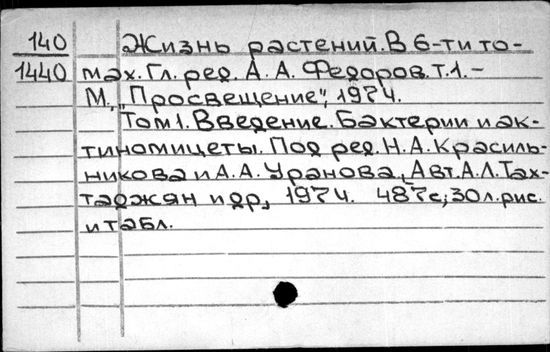 140 Жизнь растений. В 6-ти то-
1440 мах. Гл. ред. А. А. Федоров. Т.1.-
М., "Просвещение", 1974.
Том 1. Введение. Бактерии и ак-
тиномицеты. Под ред. Н. А. Красиль-
никова и А. А. Уранова, Авт. А.Л. Тах-
таджян и др., 1974. 487с; 30 л. рис.
и табл.